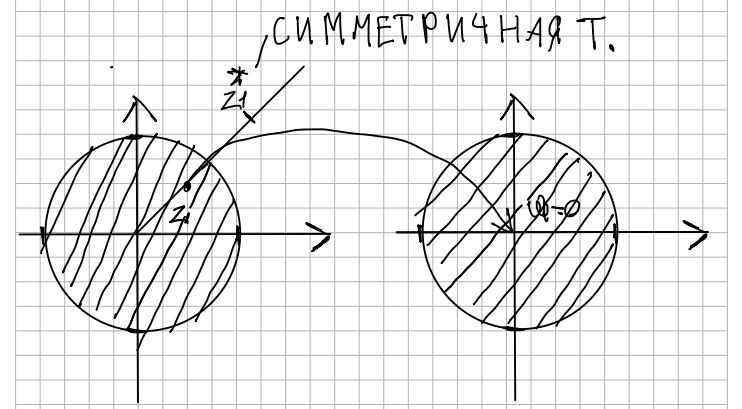 СИММЕТРИЧНАЯ Т.
Z1*
Z1
φ=0